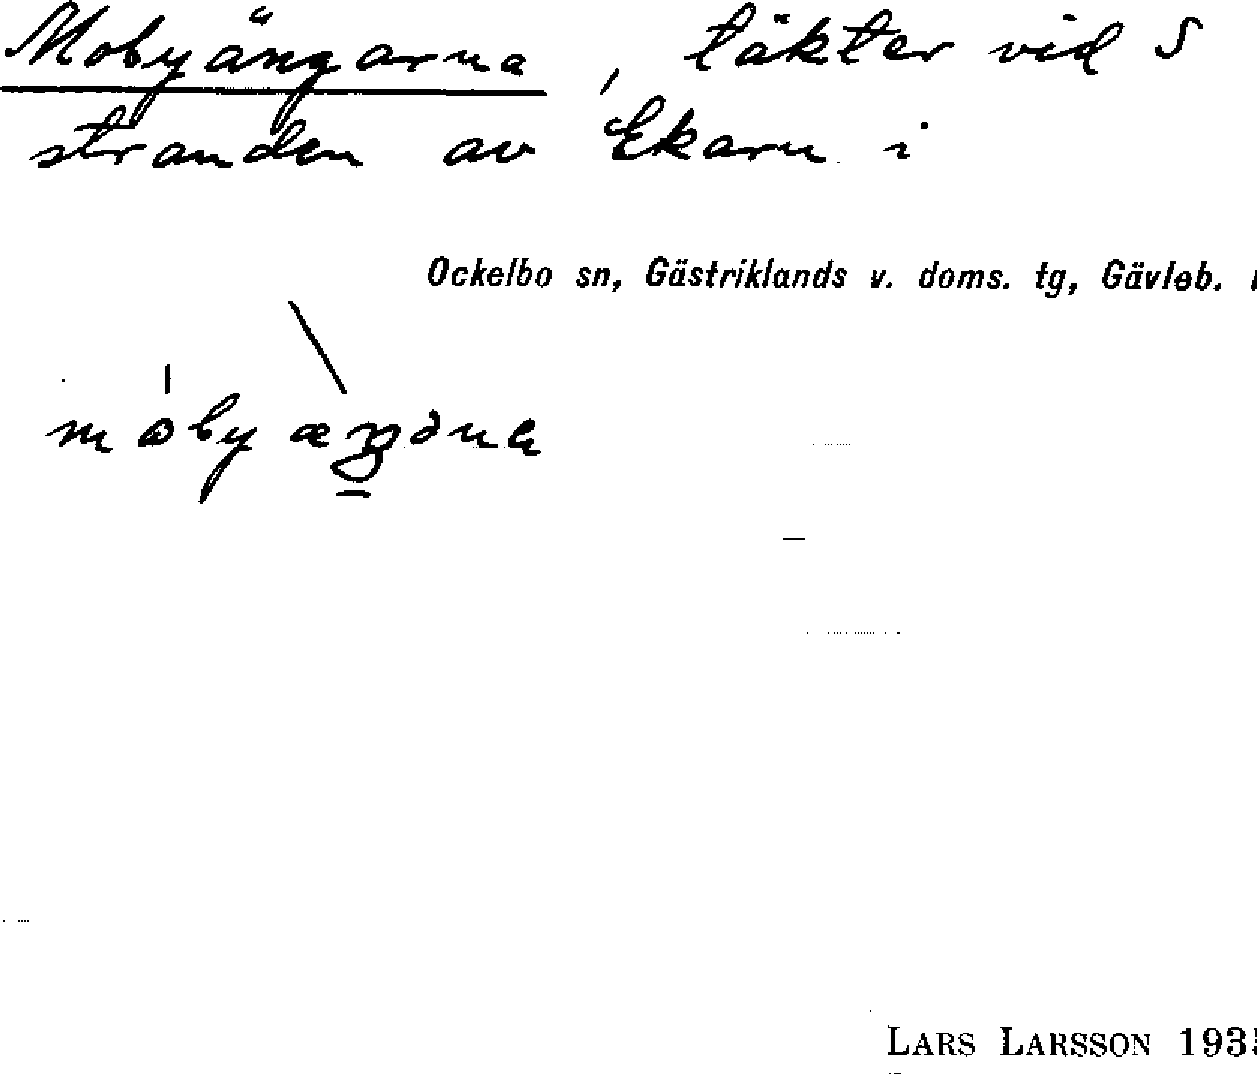 Mobyängarna, täkter vid S
stranden av Ekaren i
Ockelbo sn, Gästriklands v. doms. tg, Gävleb.
LARS LARSSON 193